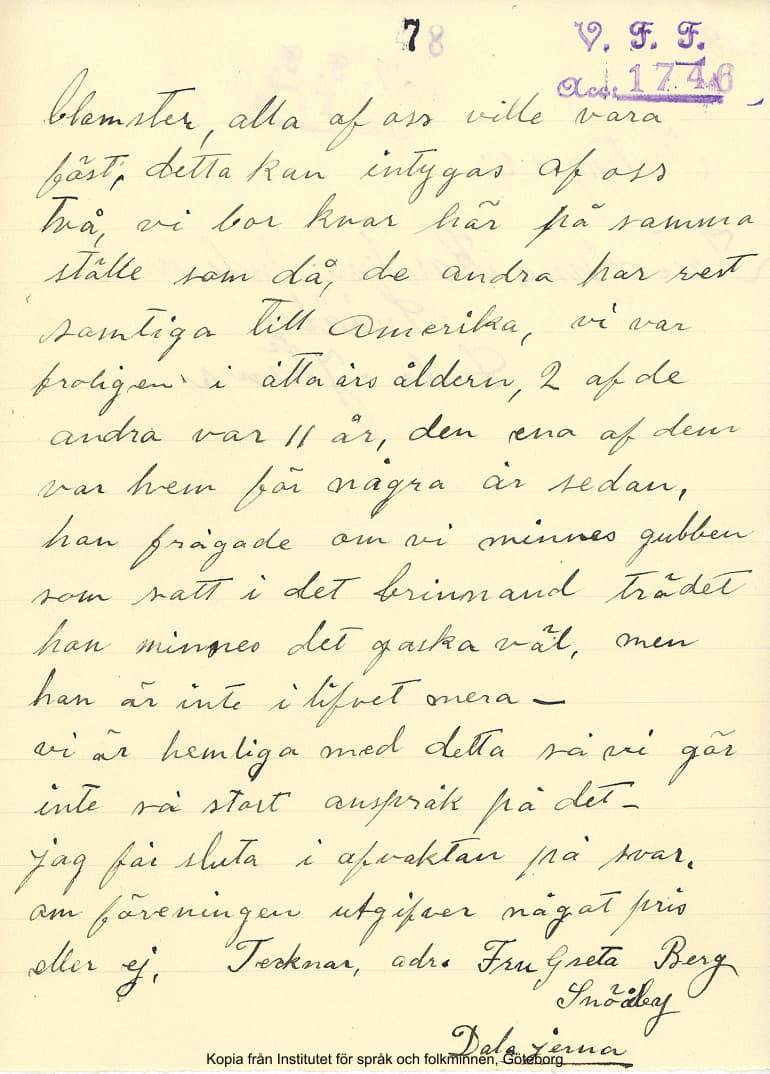 7 8
V. F. F.
Acc: 1746
blomster, alla af oss ville vara
först, detta kan intygas af oss
två, vi bor kvar här på samma
ställe som då, de andra har rest
samtliga till Amerika, vi var
troligen i åtta års åldern, 2 af de
andra var 11 år, den ena af dem
var hem för några år sedan,
han frågade om vi minnes gubben
som satt i det brinnand trädet
han minnes det gaska väl, men
han är inte i lifvet mera –
vi är hemliga med detta så vi gör
inte så stort anspråk på det –
jag får sluta i afvaktan på svar.
om föreningen utgifver något pris
eller ej. Tecknar, adr. Fru Greta Berg
Dala järna
Kopia från Institutet för språk och folkminnen, Göteborg